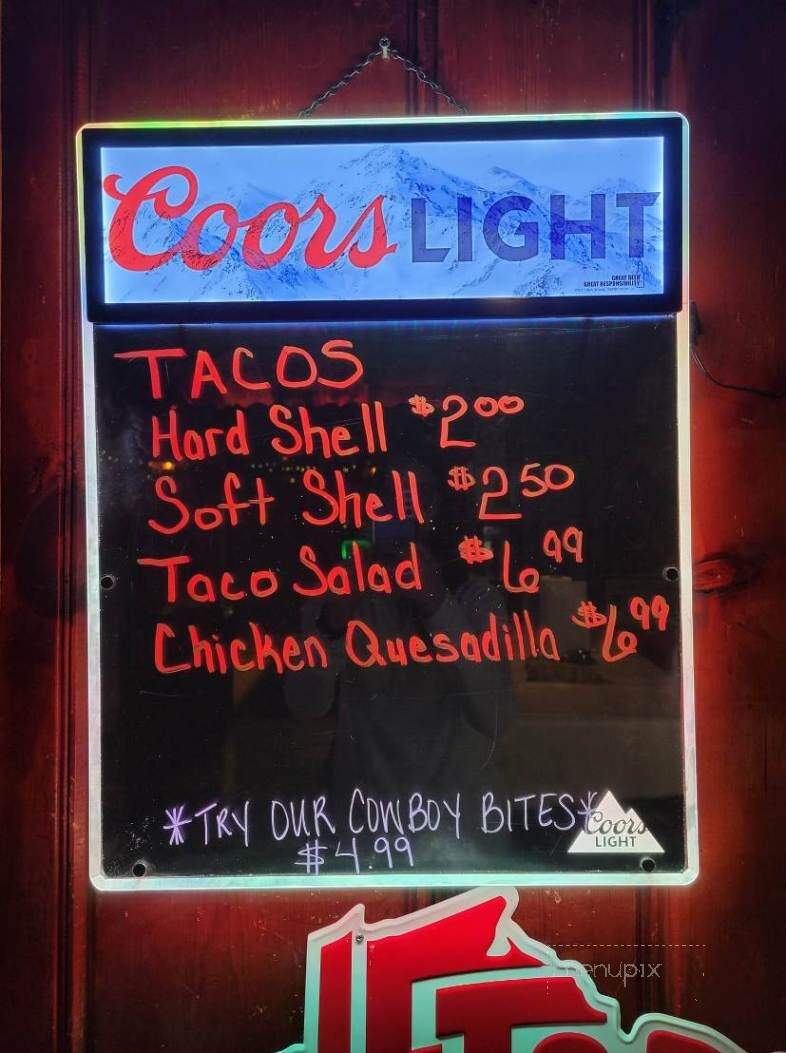 Coors LIGHT
GREAT BEER
GREAT RESPONSIBILITY
TACOS
Hard Shell $2.00
Soft Shell $2.50
Taco Salad $6.99
Chicken Quesadilla $6.99
*TRY OUR COWBOY BITES*
$4.99
Coors
LIGHT
menupix